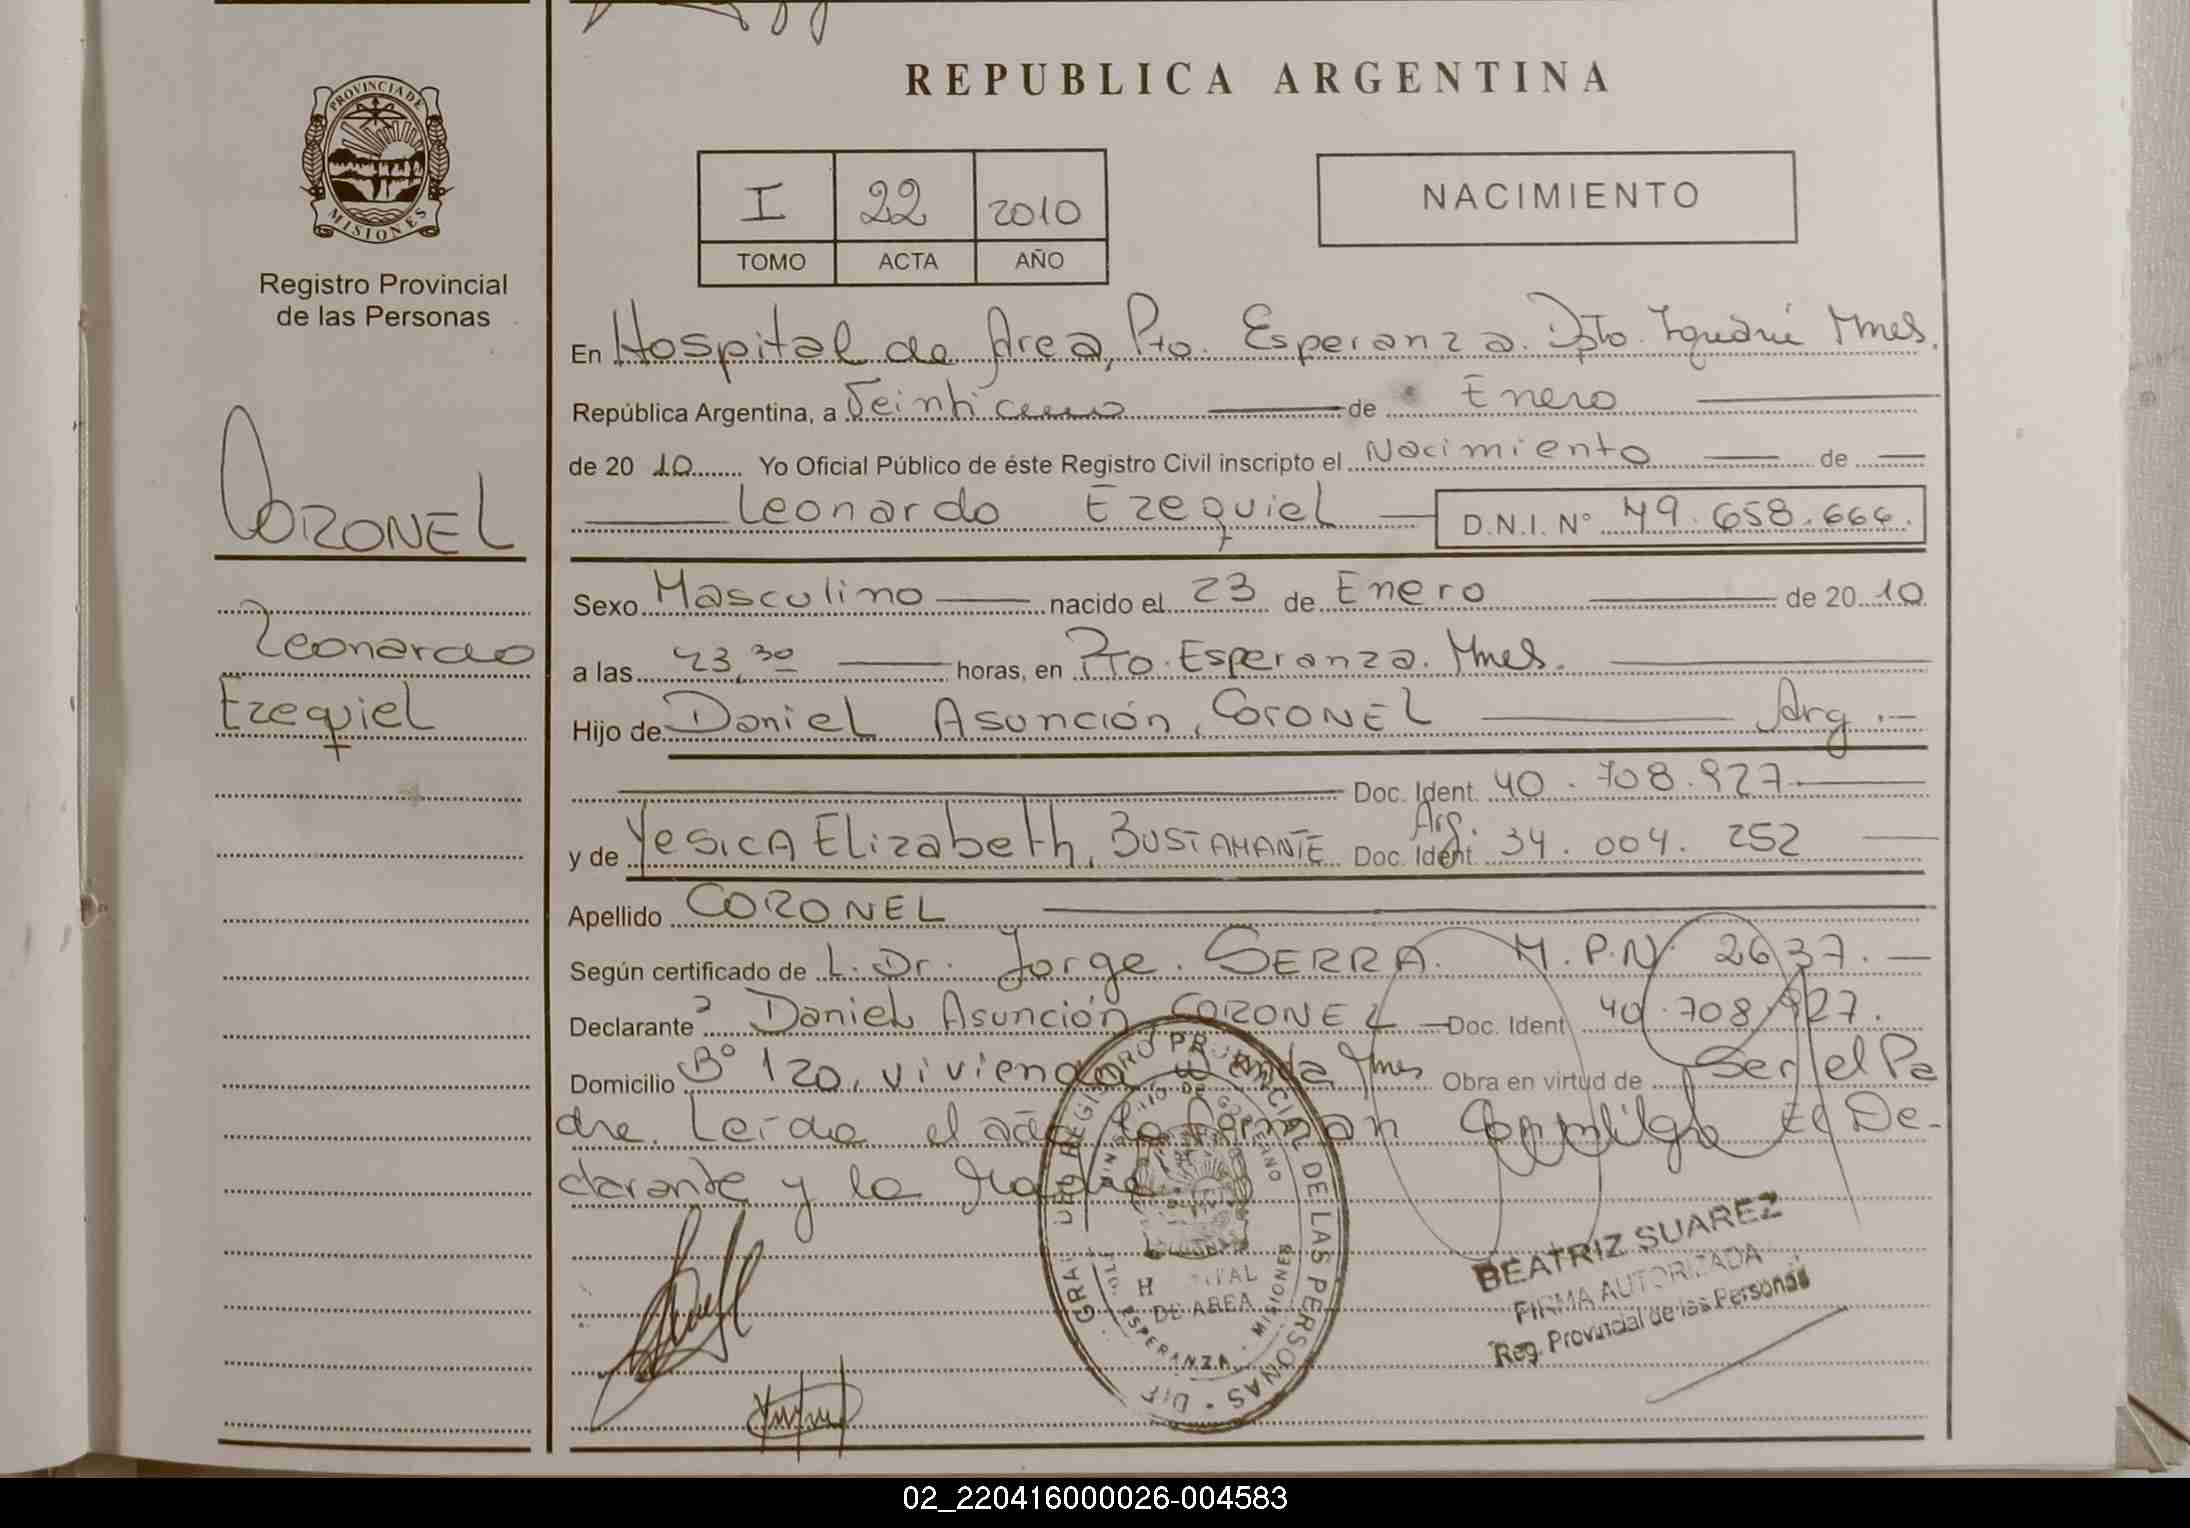 REPUBLICA ARGENTINA
PROVINCIA DE MISIONES
Registro Provincial
de las Personas
I 22 2010
TOMO ACTA AÑO
NACIMIENTO
CORONEL
Leonardo
Ezequiel
En Hospital de Area, Pto. Esperanza. Dpto. Iguazú Mnes.
República Argentina, a de Enero
de 20 10 Yo Oficial Público de éste Registro Civil inscripto el Nacimiento de
Leonardo Ezequiel D.N.I. Nº 49.658.666.
Sexo Masculino nacido el 23 de Enero de 20 10
a las 23,30 horas, en Pto. Esperanza. Mnes.
Hijo de Daniel Asunción, CORONEL Arg.
Doc. Ident. 40.708.927
y de Yesica Elizabeth, BUSTAMANTE Arg. Doc. Ident. 34.004.252
Apellido CORONEL
Según certificado de L. Dr. Jorge. SERRA. M.P.N 2637.
Declarante Daniel Asunción CORONEL Doc. Ident 40.708.927.
Domicilio Bº 120, vivienda Wanda Mnes Obra en virtud de Ser el Pa
dre. Leída el acta la firman Conmigo El De-
clarante y la Madre.
REGISTRO PROVINCIAL DE LAS PERSONAS
HOSPITAL
DE AREA
ESPERANZA - MISIONES
BEATRIZ SUAREZ
FIRMA AUTORIZADA
Reg. Provincial de las Personas
02_220416000026-004583